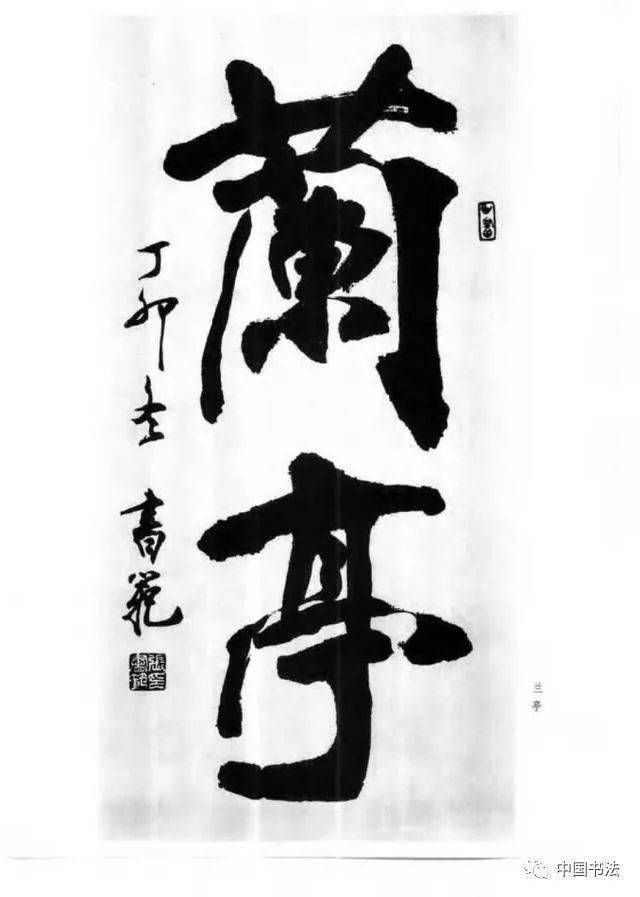 蘭亭
丁卯冬 書範
兰亭
中国书法